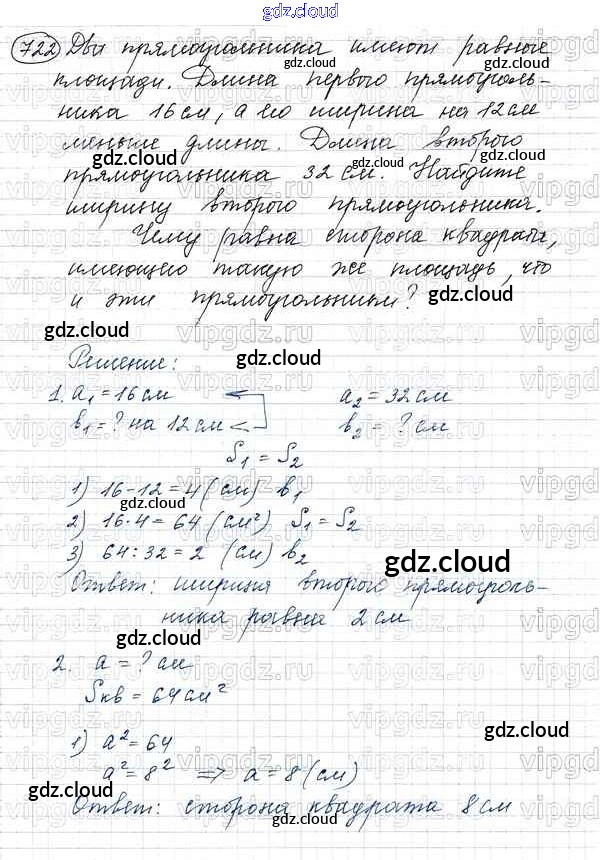 gdz.cloud
722 Два прямоугольника имеют равные
площади. Длина первого прямоуголь-
ника 16 см, а его ширина на 12 см
меньше длины. Длина второго
прямоугольника 32 см. Найдите
ширину второго прямоугольника.
Чему равна сторона квадрата,
имеющего такую же площадь, что
и эти прямоугольники?
Решение:
1. a₁ = 16 см a₂ = 32 см
b₁ = ? на 12 см b₂ = ? см
S₁ = S₂
1) 16-12 = 4 (см) b₁
2) 16·4 = 64 (см²) S₁ = S₂
3) 64 : 32 = 2 (см) b₂
Ответ: ширина второго прямоуголь-
ника равна 2 см
2. a = ? см
Sкв = 64 см²
1) a² = 64
a² = 8² ⇒ a = 8 (см)
Ответ: сторона квадрата 8 см